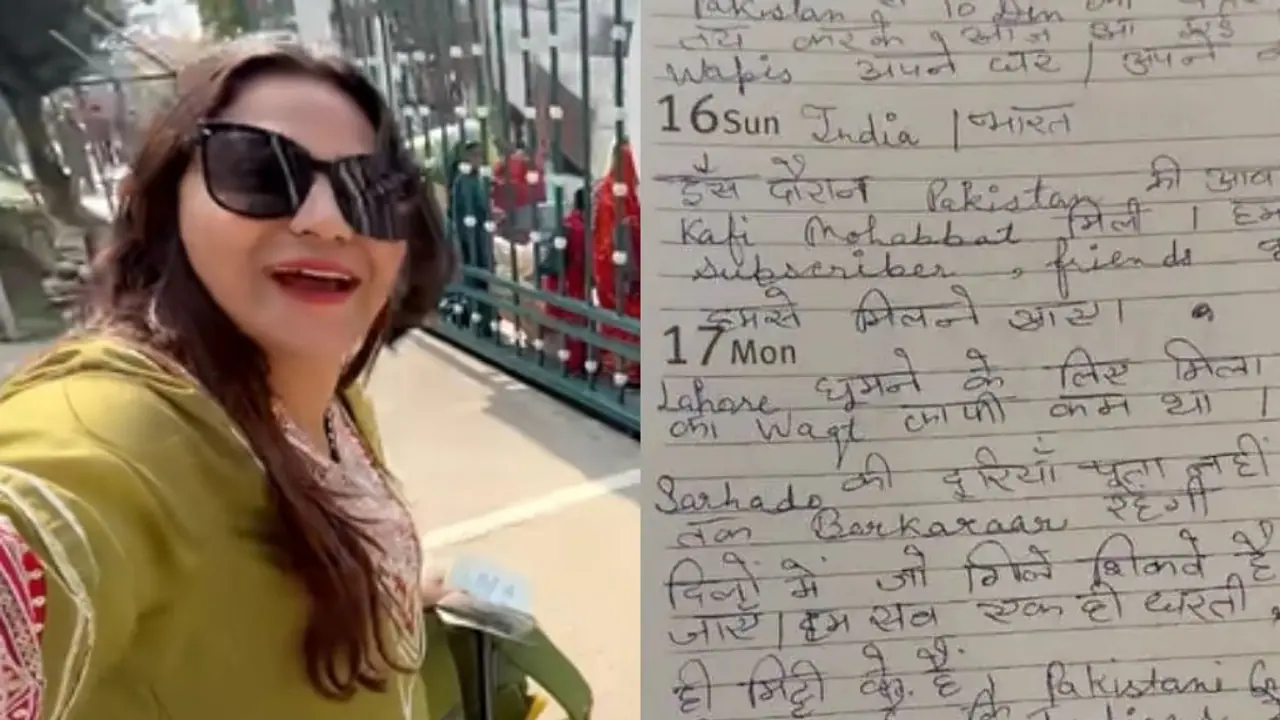 Pakistan से 10 Din का
तय करके, आज आ गई
Wapis अपने घर | अपने
16 Sun India | भारत
इस दौरान Pakistan की आव
Kafi Mohabbat मिली । हम
subscriber, friends
हमसे मिलने आए।
17 Mon
Lahore घूमने के लिए मिला
का Waqt काफी कम था ।
Sarhado की दूरियाँ पता नहीं
तक Barkaraar रहेगी
दिलों में जो गिले शिकवे है
जाएँ | हम सब एक ही धरती,
ही मिट्टी के है
Pakistani